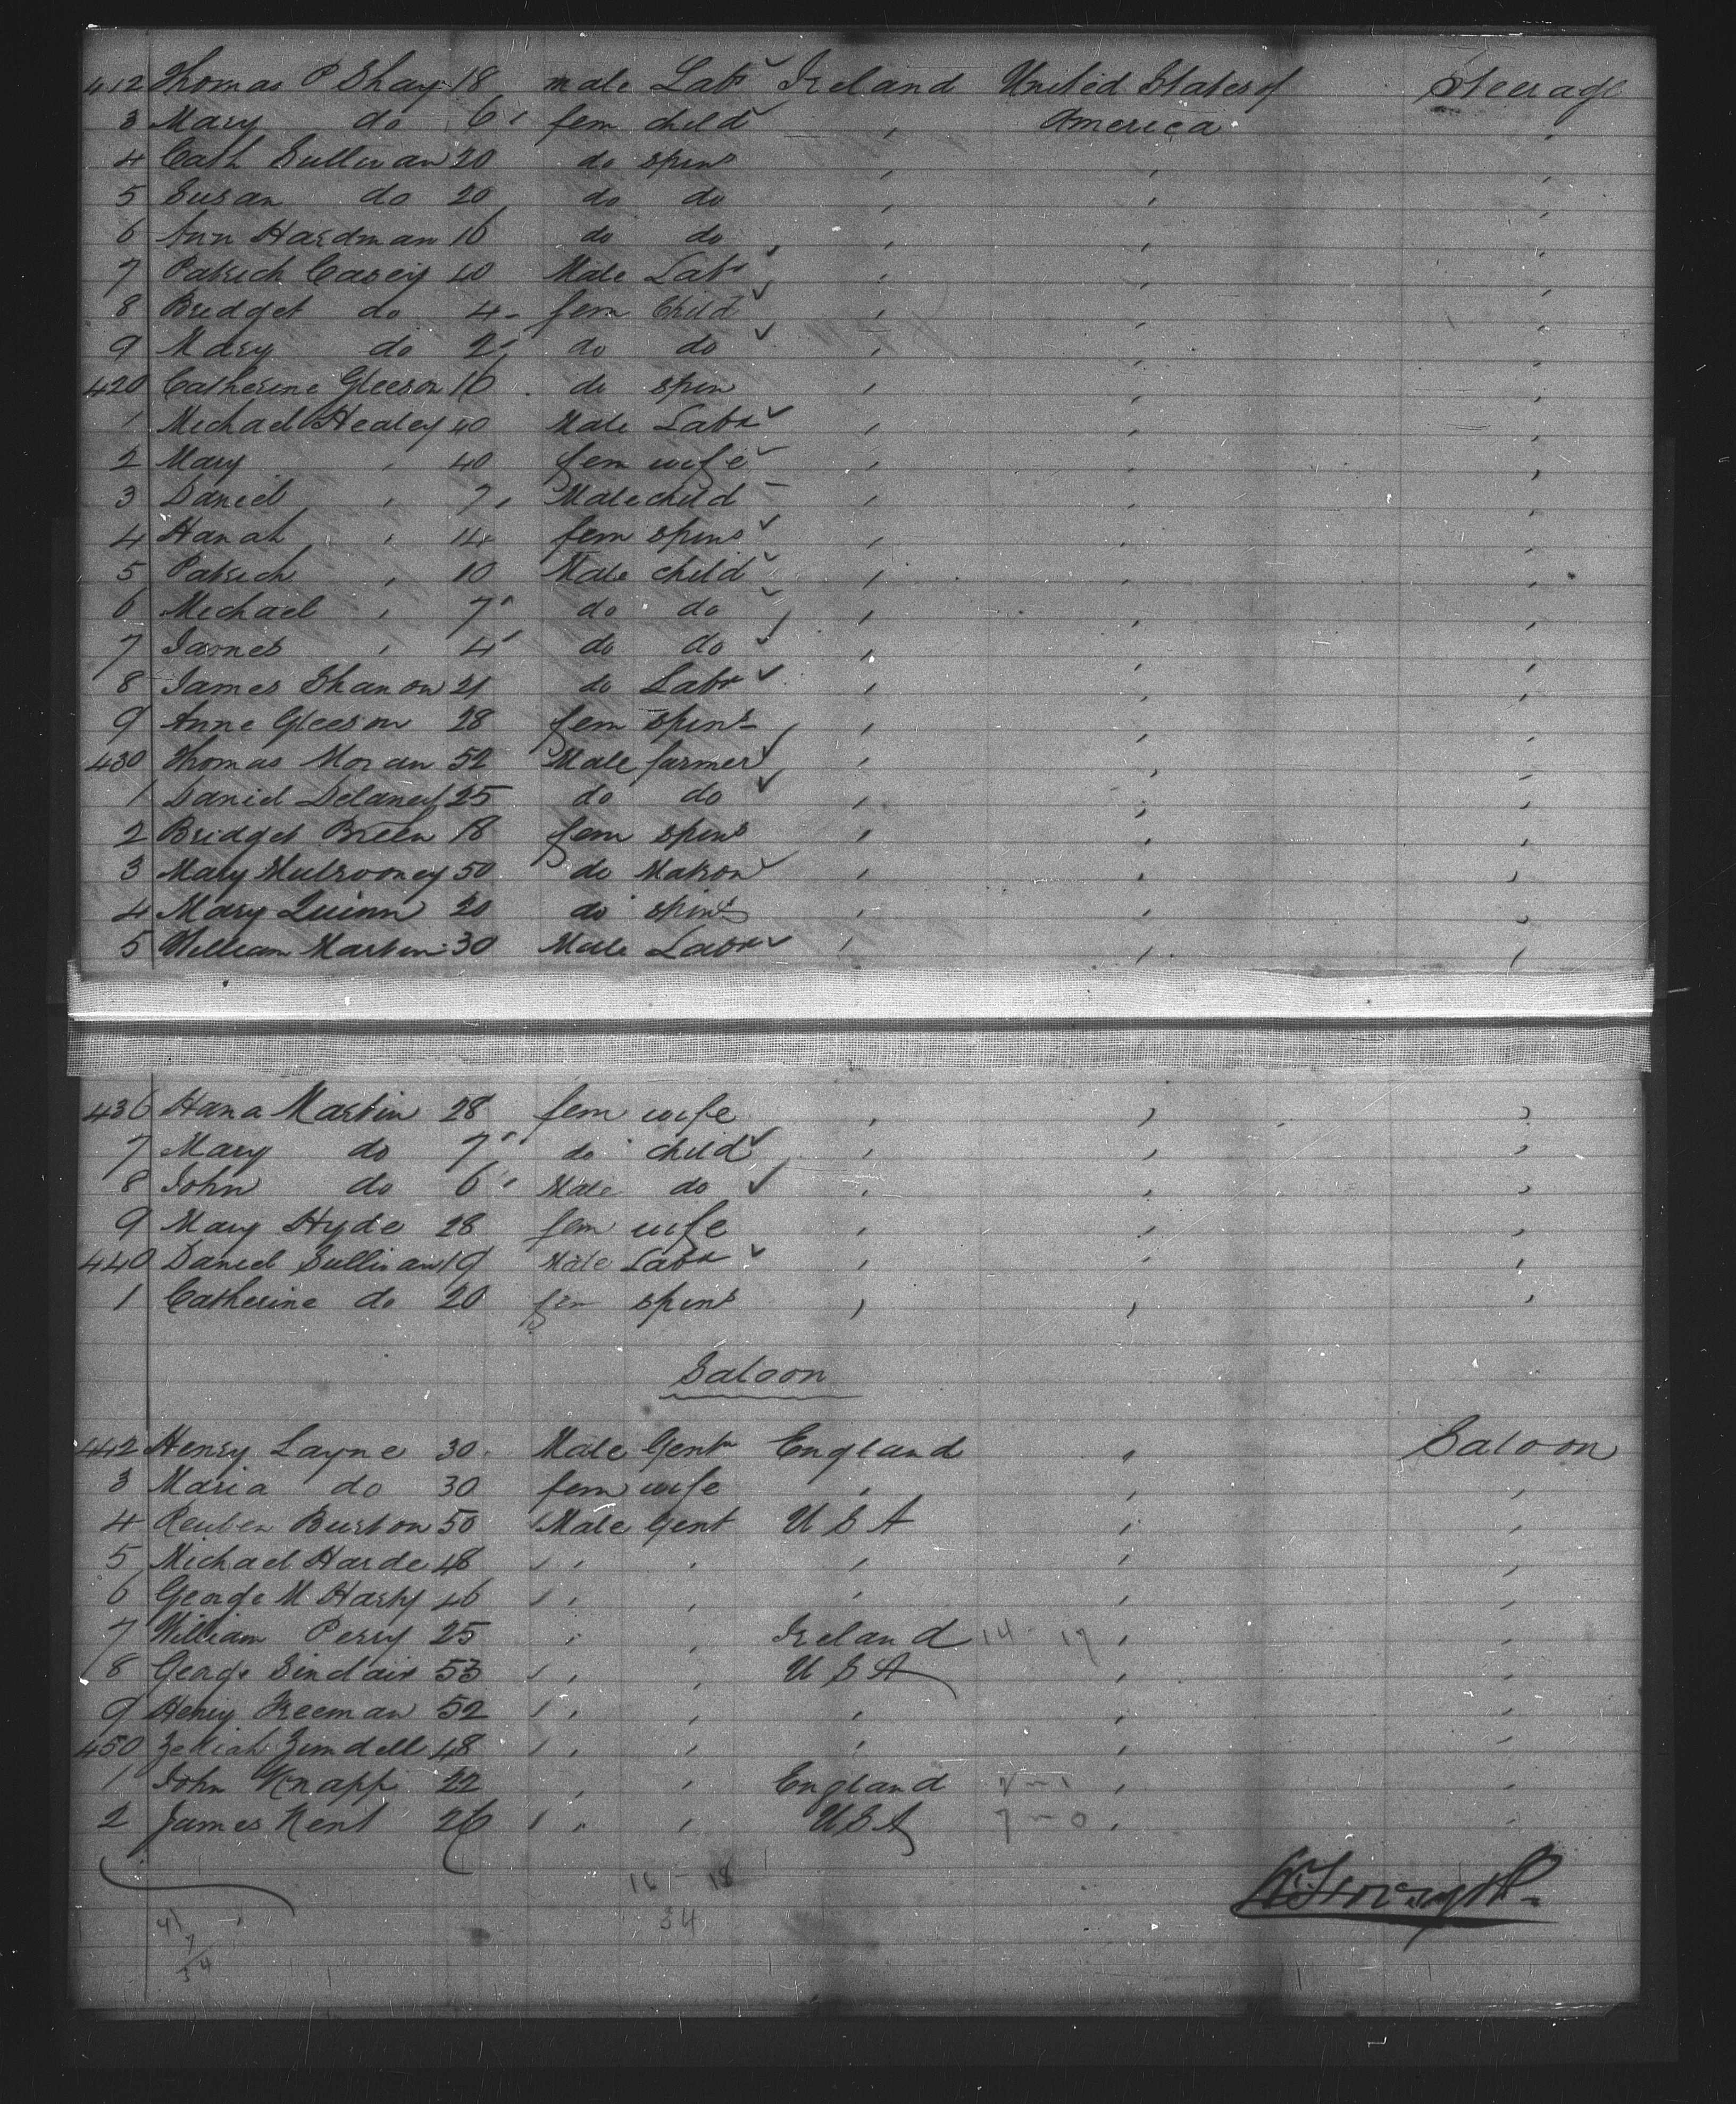 412 Thomas O Shay 18 male Labr Ireland United States of Steerage
3 Mary do 6 fem child " America "
4 Cath Sullivan 20 do spins " " "
5 Susan do 20 do do " " "
6 Ann Hardman 16 do do " " "
7 Patrick Casey 40 Male Labr " " "
8 Bridget do 4 fem Child " " "
9 Mary do 2 do do " " "
420 Catherine Gleeson 16 do spin " " "
1 Michael Healey 40 Male Labr " " "
2 Mary " 40 fem wife " " "
3 Daniel " 7 Male child " " "
4 Hanah " 14 fem spins " " "
5 Patrick " 10 Male child " " "
6 Michael " 7 do do " " "
7 James " 4 do do " " "
8 James Shanon 21 do Labr " " "
9 Anne Gleeson 28 fem spins " " "
430 Thomas Moran 52 Male farmer " " "
1 Daniel Delaney 25 do do " " "
2 Bridget Breen 18 fem spins " " "
3 Mary Mulrooney 50 do Matron " " "
4 Mary Quinn 20 do spins " " "
5 William Martin 30 Male Labr " " "
436 Hana Martin 28 fem wife " " "
7 Mary do 7 do child " " "
8 John do 6 Male do " " "
9 Mary Hyde 28 fem wife " " "
440 Daniel Sullivan 19 Male Labr " " "
1 Catherine do 20 fem spins " " "
Saloon
442 Henry Layne 30 Male Gent England " Saloon
3 Maria do 30 fem wife " " "
4 Reuben Burton 50 Male Gent U S A " "
5 Michael Harde 48 " " " " "
6 George M Harty 46 " " " " "
7 William Perry 25 " " Ireland 14 - 17 " "
8 George Sinclair 53 " " U S A " "
9 Henry Freeman 52 " " " " "
450 Zekiah Zimdell 48 " " " " "
1 John Knapp 22 " " England " "
2 James Kent 26 " " U S A 7 - 0 " "
16 - 18
34